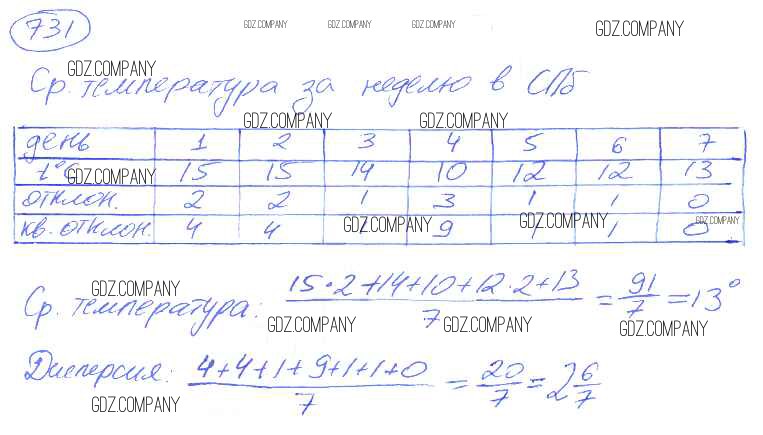 731
GDZ.COMPANY GDZ.COMPANY GDZ.COMPANY GDZ.COMPANY
GDZ.COMPANY
Ср. температура за неделю в СПб
GDZ.COMPANY GDZ.COMPANY
день 1 2 3 4 5 6 7
t°C 15 15 14 10 12 12 13
GDZ.COMPANY
отклон. 2 2 1 3 1 1 0
кв. отклон. 4 4 1 9 1 1 0
GDZ.COMPANY GDZ.COMPANY GDZ.COMPANY
GDZ.COMPANY
Ср. температура: (15·2+14+10+12·2+13)/7 = 91/7 = 13°
GDZ.COMPANY GDZ.COMPANY GDZ.COMPANY
Дисперсия: (4+4+1+9+1+1+0)/7 = 20/7 = 2 6/7
GDZ.COMPANY